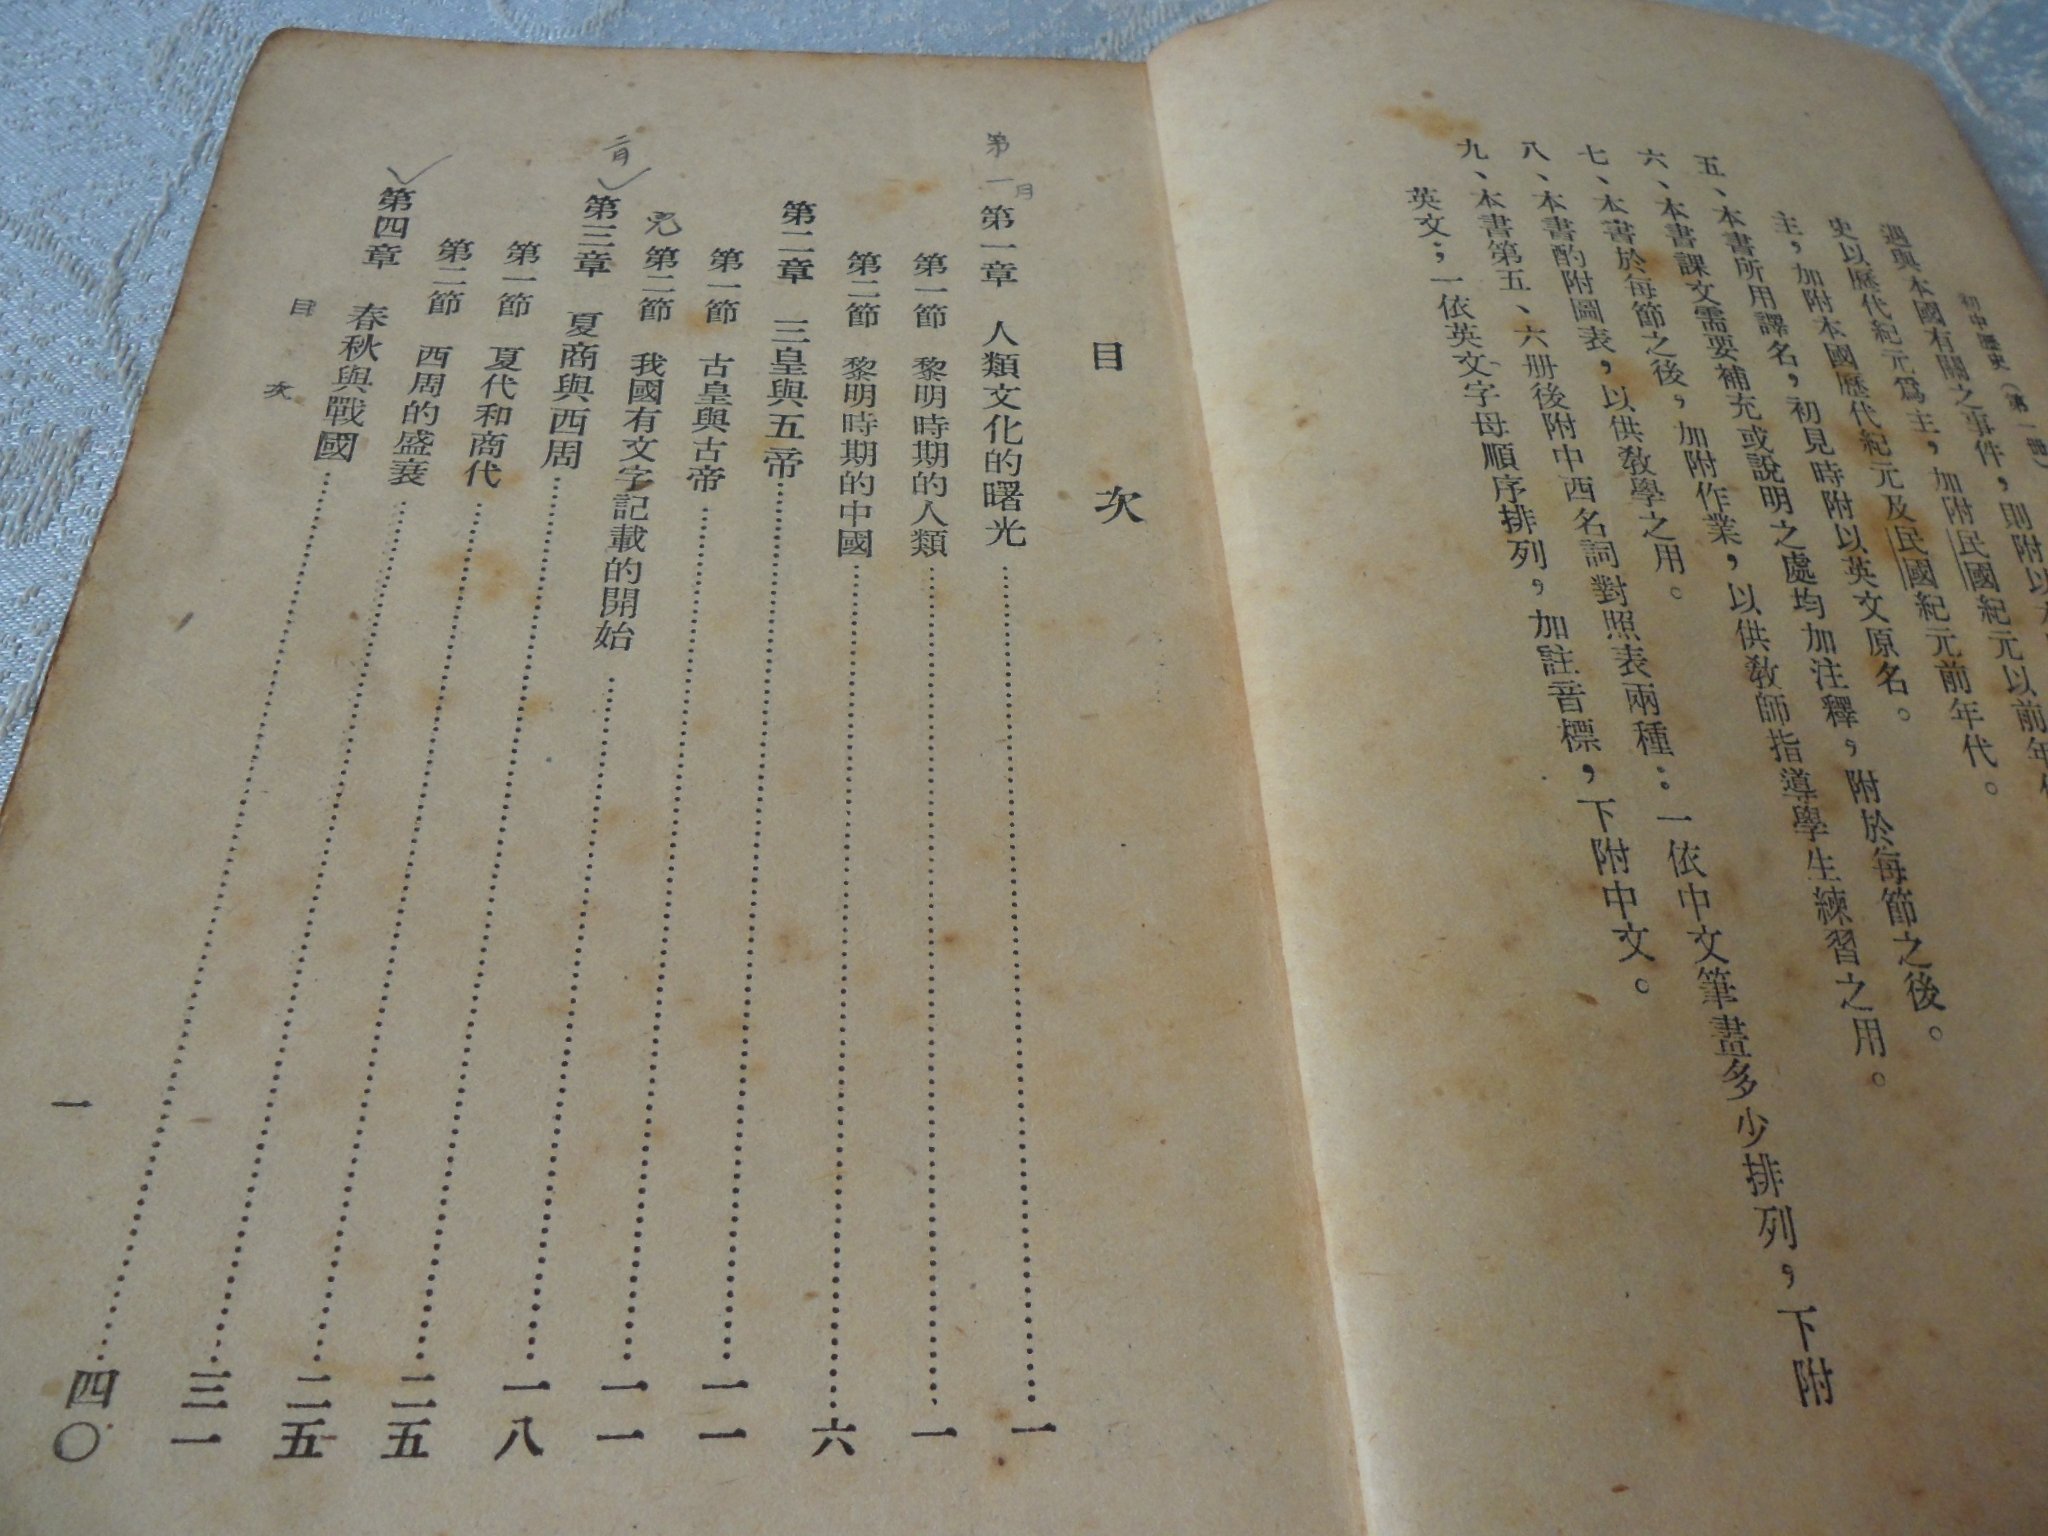 初中歷史（第一冊）
遇與本國有關之事件，則附以本
史以歷代紀元爲主，加附民國紀元以前年代
主，加附本國歷代紀元及民國紀元前年代。
五、本書所用譯名，初見時附以英文原名。
六、本書課文需要補充或說明之處均加注釋，附於每節之後。
七、本書於每節之後，加附作業，以供敎師指導學生練習之用。
八、本書酌附圖表，以供敎學之用。
九、本書第五、六册後附中西名詞對照表兩種：一依中文筆畫多少排列，下附
英文；一依英文字母順序排列，加註音標，下附中文。
目　次
第一月
第一章　人類文化的曙光……一
第一節　黎明時期的人類……一
第二節　黎明時期的中國……六
第二章　三皇與五帝……一一
第一節　古皇與古帝……一一
第二節　我國有文字記載的開始……一八
二月
第三章　夏商與西周……二五
第一節　夏代和商代……二五
第二節　西周的盛衰……三一
第四章　春秋與戰國……四〇
目　次
一